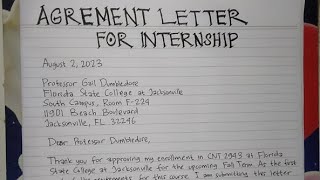 AGREMENT LETTER
FOR INTERNSHIP
August 2, 2023
Professor Gail Dumbledore,
Florida State College at Jacksonville
South Campus, Room F-224
11901 Beach Boulevard
Jacksonville, FL 32246
Dear, Professor Dumbledore,
Thank you for approving my enrollment in CNT 2943 at Florida
State College at Jacksonville for the upcoming Fall Term. As the first
for this course. I am submitting this letter